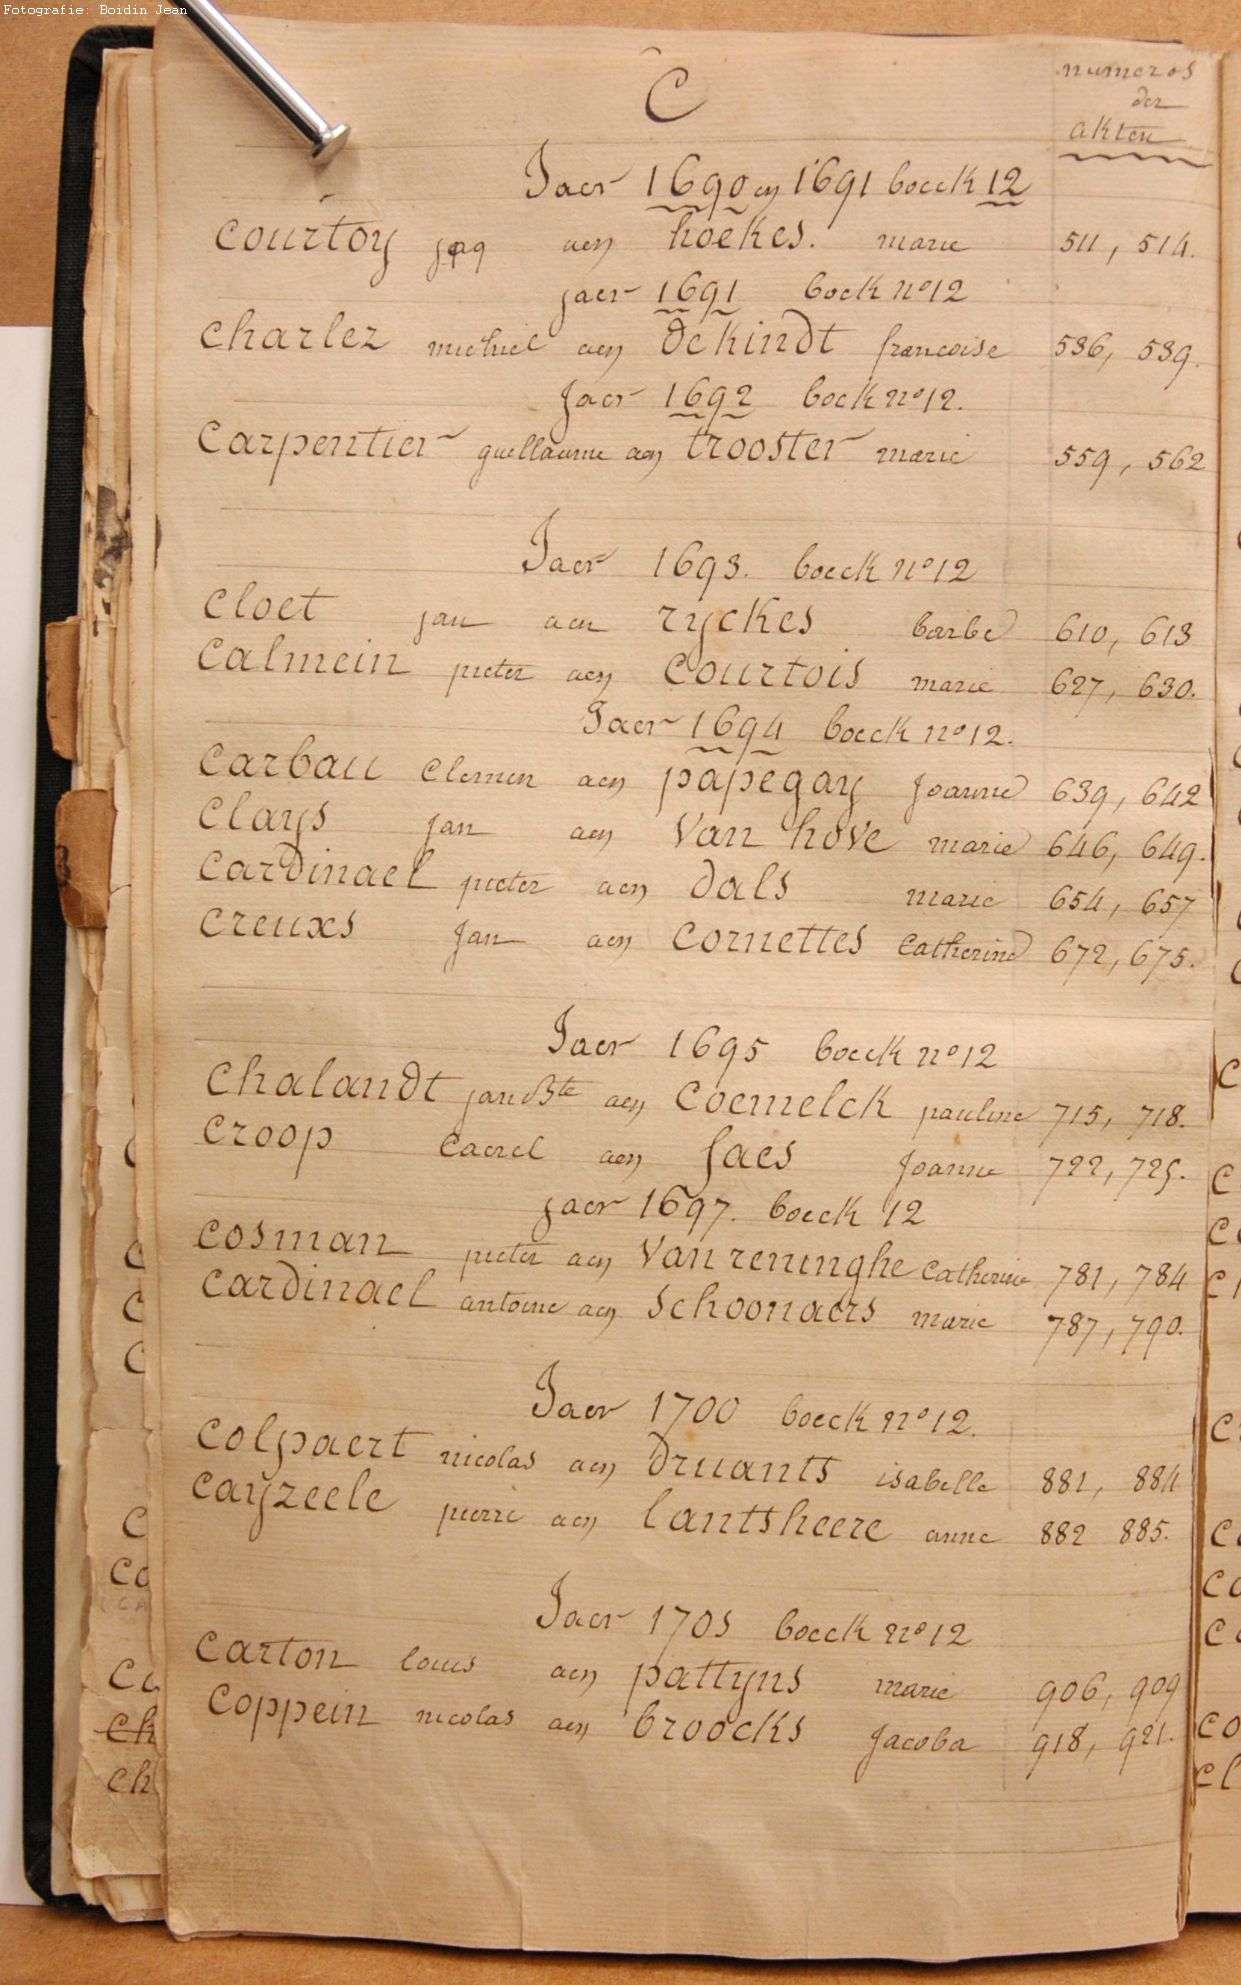 Fotografie: Boidin Jean
C
numeros
der
akten
Jaer 1690 en 1691 boeck 12
courtoy jaq aen hoekes. marie 511, 514.
jaer 1691 boek nº12
charlez michiel aen dekindt francoise 536, 539.
Jaer 1692 boek nº12.
carpentier guellaume aen trooster marie 559, 562
Jaer 1693. boeck nº12
cloet jan aen ryckes barbe 610, 613
calmein pieter aen courtois marie 627, 630.
Jaer 1694 boeck nº12.
carbau clemen aen papegay Joanne 639, 642
clays jan aen van hove marie 646, 649.
cardinael pieter aen dals marie 654, 657
creuxs Jan aen cornettes catherine 672, 675.
Jaer 1695 boeck nº12
chalandt jan Bte aen coemelck pauline 715, 718.
croop caerel aen faes Joanne 722, 725.
jaer 1697. boeck 12
cosman pieter aen van reninghe catherine 781, 784
cardinael antoine aen schoonaers marie 787, 790.
Jaer 1700 boeck nº12.
colpaert nicolas aen druants isabelle 881, 884
cayzeele pierre aen lantsheere anne 882 885.
Jaer 1705 boeck nº12
carton louis aen pattyns marie 906, 909
coppein nicolas aen broocks Jacoba 918, 921.